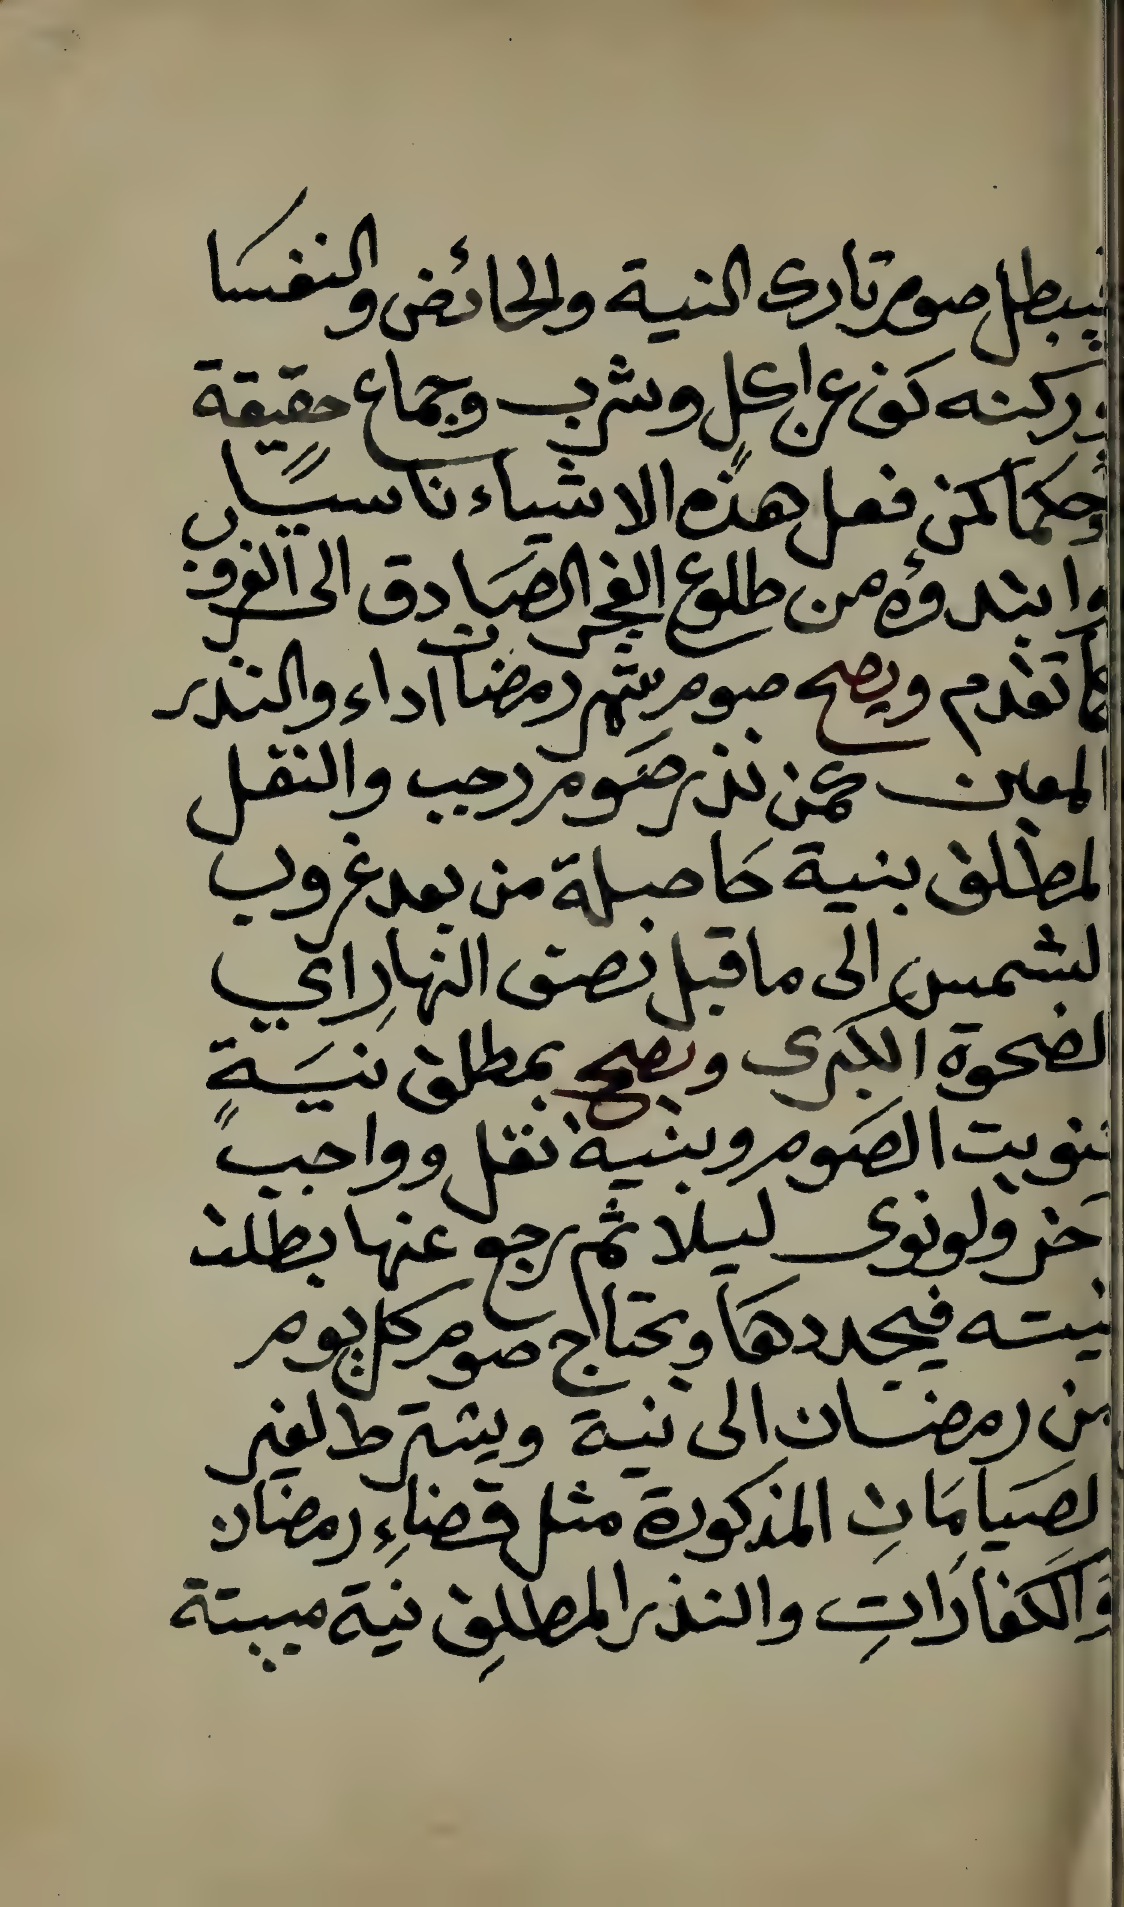 فيبطل صوم تارك النية والحائض والنفسا
وركنه كف عن اكل وشرب وجماع حقيقة
وحكمًا كمن فعل هذه الاشياء ناسيًا
وابتدؤه من طلوع الفجر الصادق الى الغروب
كما تقدم ويصح صوم شهر رمضان اداء والنذر
المعين كمن نذر صوم رجب والنفل
المطلق بنية حاصلة من بعد غروب
الشمس الى ما قبل نصف النهار اي
الضحوة الكبرى ويصح بمطلق نية
كنويت الصوم وبنية نفل وواجب
آخر ولو نوى ليلا ثم رجع عنها بطلت
نيته فيجددها ويحتاج صوم كل يوم
من رمضان الى نية ويشترط لغير
الصيامات المذكورة مثل قضاء رمضان
والكفارات والنذر المطلق نية مبيتة